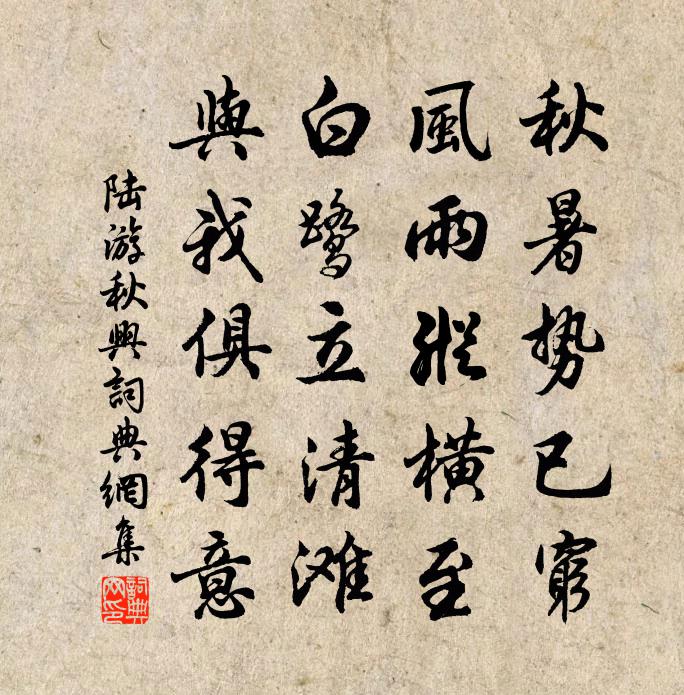 秋暑势已窮
風雨縱橫至
白鹭立清滩
與我俱得意
陆游秋興詞典網集
詞典网印